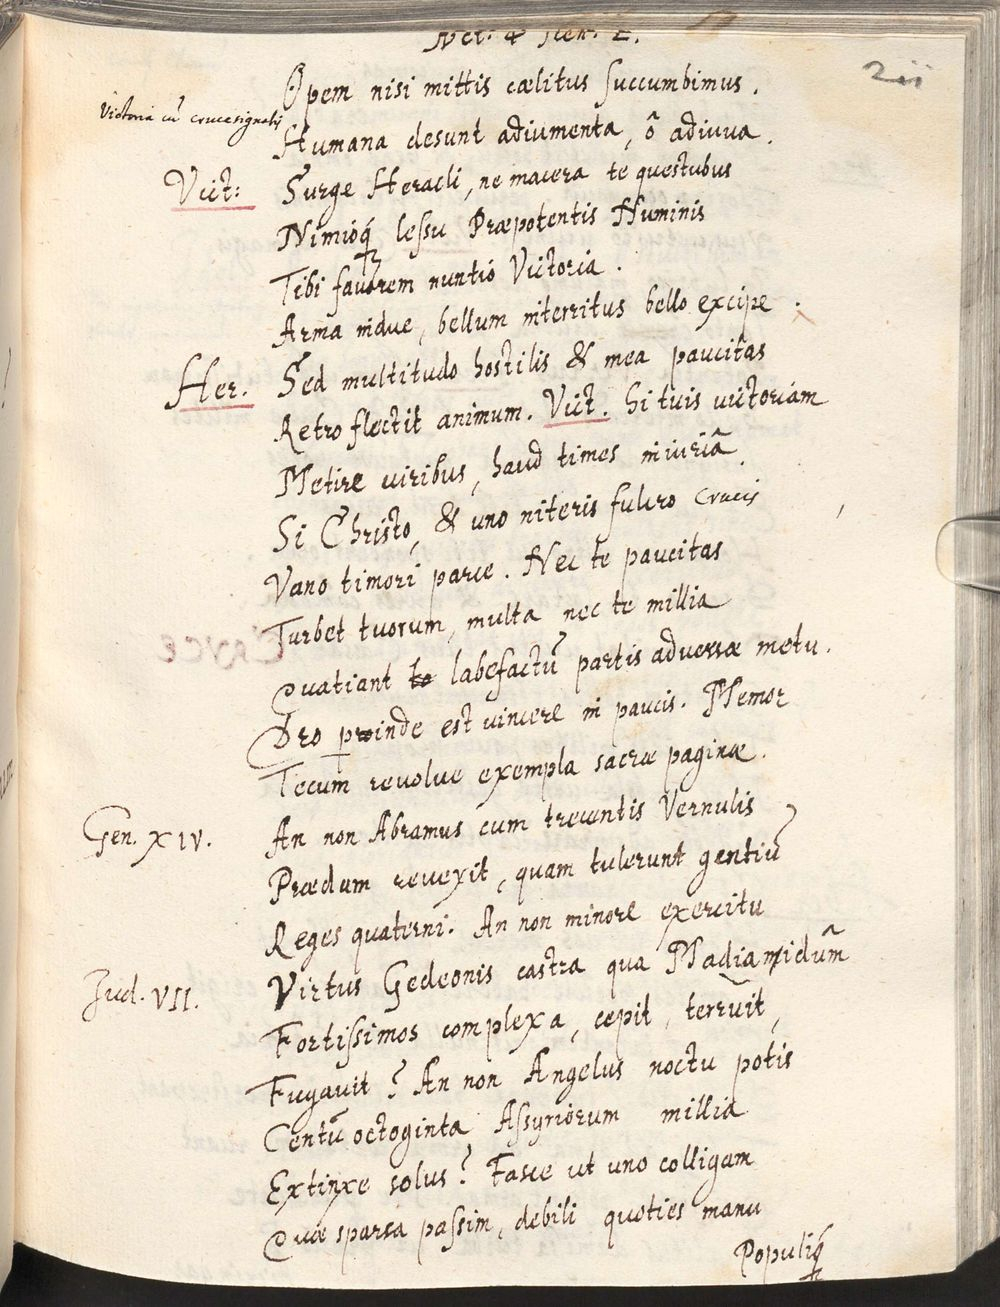 Act. & scen. 2.
211
Opem nisi mittis cælitus succumbimus.
Victoria cū crucesignatis
Humana desunt adiumenta, ô adiuua.
Vict: Surge Heracli, ne macera te questubus
Nimioq́ lessu Præpotentis Numinis
Tibi favorem nuntio Victoria.
Arma indue, bellum interritus bello excipe.
Her. Sed multitudo hostilis & mea paucitas
Retro flectit animum. Vict. Si tuis uictoriam
Metire uiribus, haud times iniuriâ.
Si Christo, & uno niteris fulcro Crucis
Vano timori parce. Nec te paucitas
Turbet tuorum, multa nec te millia
Quatiant te labefactū partis aduersæ metu.
Pro proinde est uincere in paucis. Memor
Tecum reuolue exempla sacræ paginæ.
Gen. XIV. An non Abramus cum trecentis Vernulis
Prædam reuexit, quam tulerunt gentiū
Reges quaterni. An non minore exercitu
Jud. VII. Virtus Gedeonis castra qua Madianidûm
Fortissimos complexa, cepit, terruit,
Fugauit? An non Angelus noctu potis
Centū octoginta Assyriorum millia
Extinxe solus? Fasce ut uno colligam
Quæ sparsa passim, debili quoties manu
Populiq́